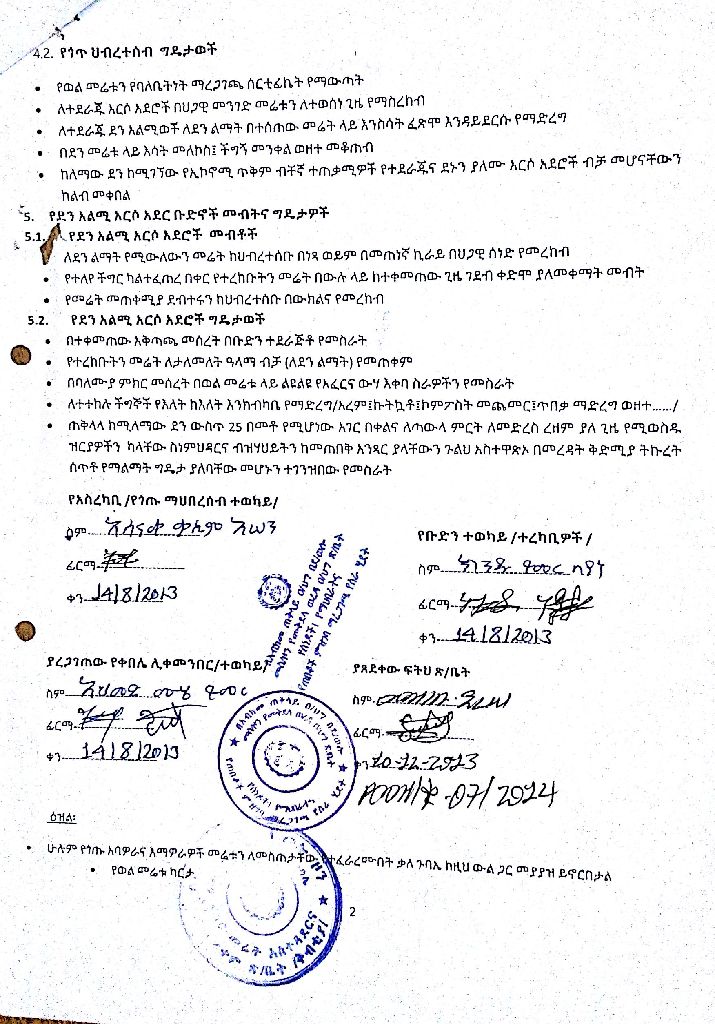 4.2. የጎጥ ህብረተሰብ ግዴታወች
• የወል መሬቱን የባለቤትነት ማረጋገጫ ሰርቲፊኬት የማውጣት
• ለተደራጁ አርሶ አደሮች በህጋዊ መንገድ መሬቱን ለተወሰነ ጊዜ የማስረከብ
• ለተደራጁ ደን አልሚወች ለደን ልማት በተሰጠው መሬት ላይ እንስሳት ፈጽሞ እንዳይደርሱ የማድረግ
• በደን መሬቱ ላይ እሳት መለኮስ፤ ችግኝ መንቀል ወዘተ መቆጠብ
• ከለማው ደን ከሚገኘው የኢኮኖሚ ጥቅም ብቸኛ ተጠቃሚዎች የተደራጁና ደኑን ያለሙ አርሶ አደሮች ብቻ መሆናቸውን
ከልብ መቀበል
5. የደን አልሚ አርሶ አደር ቡድኖች መብትና ግዴታዎች
5.1. የደን አልሚ አርሶ አደሮች መብቶች
ለደን ልማት የሚውለውን መሬት ከህብረተሰቡ በነጻ ወይም በመጠነኛ ኪራይ በህጋዊ ሰነድ የመረከብ
• የተለየ ችግር ካልተፈጠረ በቀር የተረከቡትን መሬት በውሉ ላይ ከተቀመጠው ጊዜ ገደብ ቀድሞ ያለመቀማት መብት
• የመሬት መጠቀሚያ ደብተሩን ከህብረተሰቡ በውክልና የመረከብ
5.2. የደን አልሚ አርሶ አደሮች ግዴታወች
• በተቀመጠው አቅጣጫ መሰረት በቡድን ተደራጅቶ የመስራት
• የተረከቡትን መሬት ለታለመለት ዓላማ ብቻ (ለደን ልማት) የመጠቀም
• በባለሙያ ምክር መሰረት በወል መሬቱ ላይ ልዩልዩ የአፈርና ውሃ እቀባ ስራዎችን የመስራት
• ለተተከሉ ችግኞች የእለት ከእለት እንክብካቤ የማድረግ/አረም፤ኩትኳቶ፤ኮምፖስት መጨመር፤ጥበቃ ማድረግ ወዘተ....../
• ጠቅላላ ከሚለማው ደን ውስጥ 25 በመቶ የሚሆነው አገር በቀልና ለጣውላ ምርት ለመድረስ ረዘም ያለ ጊዜ የሚወስዱ
ዝርያዎችን ካላቸው ስነምህዳርና ብዝሃህይትን ከመጠበቅ አንጻር ያላቸውን ጉልህ አስተዋጽኦ በመረዳት ቅድሚያ ትኩረት
ሰጥቶ የማልማት ግዴታ ያለባቸው መሆኑን ተገንዝበው የመስራት
የአስረካቢ /የጎጡ ማህበረሰብ ተወካይ/
ስም
ፊርማ
ቀን 14/8/2013
የቡድን ተወካይ /ተረካቢዎች /
ስም
ፊርማ
ቀን 14/8/2013
ያረጋገጠው የቀበሌ ሊቀመንበር/ተወካይ/
ስም
ፊርማ
ቀን 14/8/2013
ያጸደቀው ፍትህ ጽ/ቤት
ስም
ፊርማ
ቀን 20-12-2013
07/2014
ዕዝል፡
• ሁሉም የጎጡ አባዎራና እማዎራዎች መሬቱን ለመስጠታቸው የተፈራረሙበት ቃለ ጉባኤ ከዚህ ውል ጋር መያያዝ ይኖርበታል
• የወል መሬቱ ካርታ
2